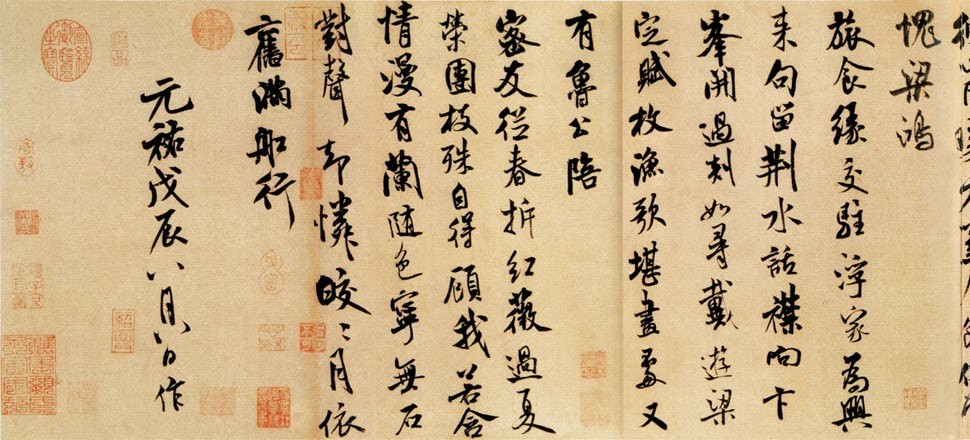 愧梁鴻
旅食緣交駐浮家為興
来句留荆水話襟向卞
峯開過剡如尋戴遊梁
定賦枚漁歌堪畫處又
有魯公陪
密友從春拆紅薇過夏
榮團枝殊自得顧我若含
情漫有蘭随色寧無石
對聲却憐皎〻月依
舊滿船行
元祐戊辰八月八日作